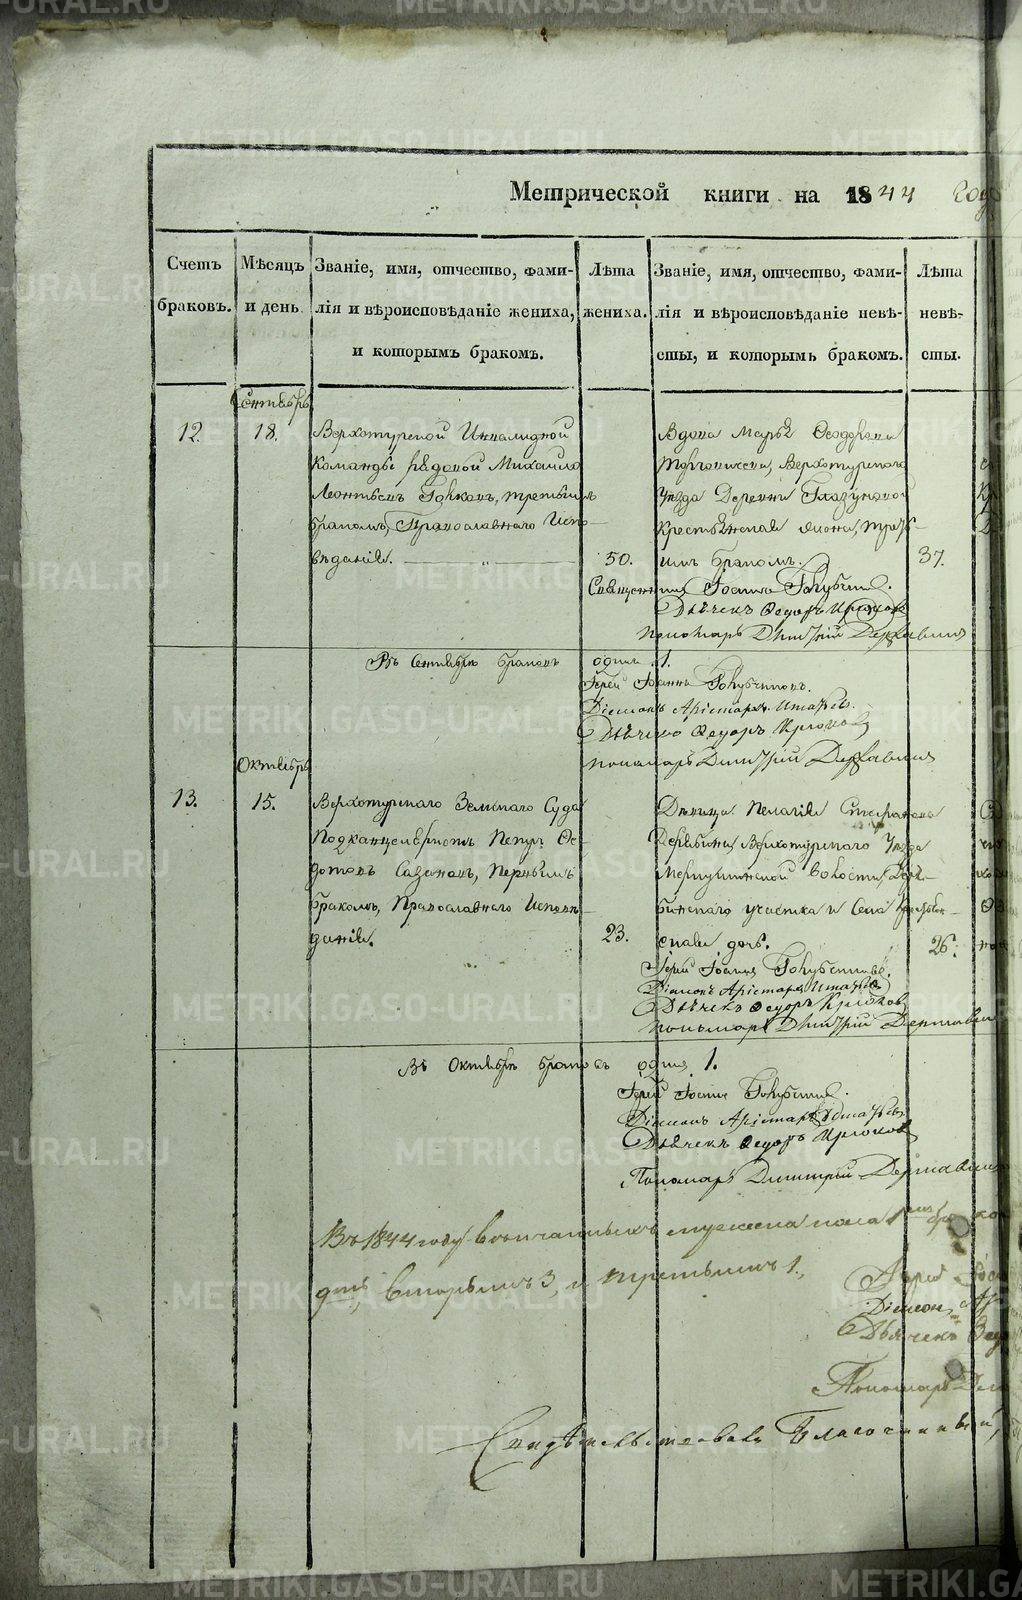 Метрической книги на 1844 году
Счетъ браковъ.
Мѣсяцъ и день.
Званіе, имя, отчество, фами-
лія и вѣроисповѣданіе жениха,
и которымъ бракомъ.
Лѣта
жениха.
Званіе, имя, отчество, фами-
лія и вѣроисповѣданіе невѣ-
сты, и которымъ бракомъ.
Лѣта
невѣ-
сты.
Сентябрь
12. 18.
Верхотурской Инвалидной
Команды рядовой Михаило
Леонтьевъ, третьимъ
бракомъ, Православнаго Испо-
вѣданія.
50.
Вдова Марья Феодорова
Верхотурскаго
Уѣзда Деревни Глазуновой
Крестьянская жена, треть-
имъ бракомъ.
37.
Священникъ Іоаннъ
Дьячекъ Федоръ Крюковъ
Пономарь Димитрій Державинъ
Въ Сентябрѣ браковъ одинъ 1.
Іерей Іоаннъ
Діаконъ Арістархъ
Дьячекъ Федоръ Крюковъ
Пономарь Димитрій Державинъ
Октябрь
13. 15.
Верхотурскаго Земскаго Суда
Подканцеляристъ Петръ Фе-
дотовъ Сазоновъ, Первымъ
бракомъ, Православнаго Исповѣ-
данія.
23.
Дѣвица Пелагія Стефанова
Дерябина Верхотурскаго Уѣзда
Меркушинской Волости, Деря-
бинскаго участка и Села крестьян-
ская дочь.
26.
Іерей Іоаннъ
Діаконъ Арістархъ
Дьячекъ Федоръ Крюковъ
Пономарь Димитрій Державинъ
Въ Октябрѣ браковъ одинъ 1.
Іерей Іоаннъ
Діаконъ Арістархъ
Дьячекъ Федоръ Крюковъ
Пономарь Димитрій Державинъ
Въ 1844 году
вторымъ 3, и третьимъ 1.
Іерей
Діаконъ
Дьячекъ
Пономарь
Свидѣтельствовалъ Благочинный,
METRIKI.GASO-URAL.RU